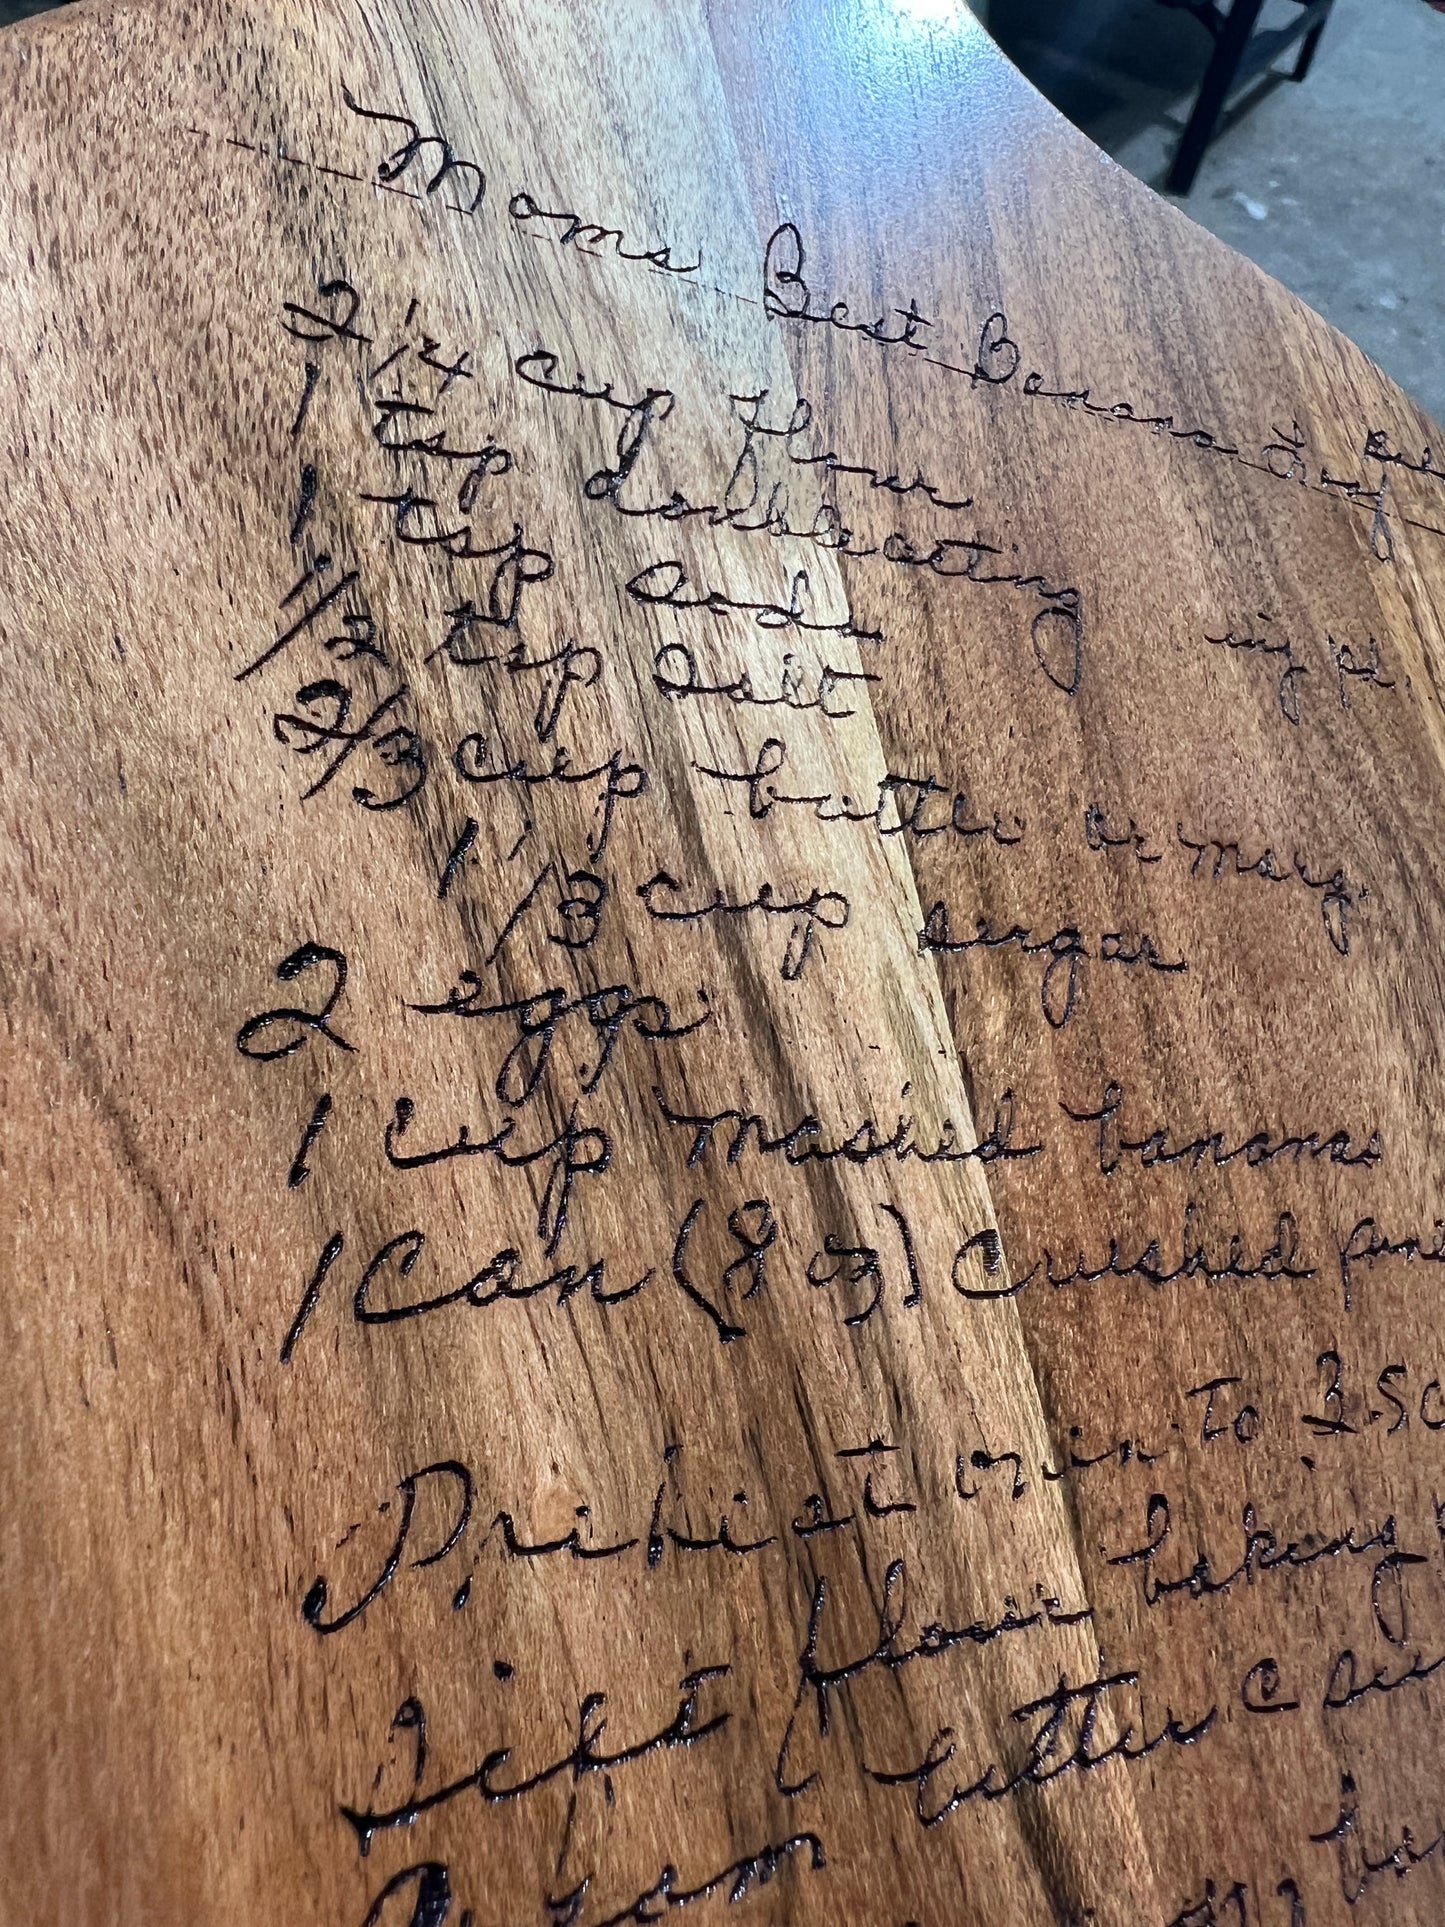 Moms Best Banana Loaf
2 1/4 cup flour
1 tsp doubleacting
1 tsp soda
1/2 tsp salt
2/3 cup butter or marg.
1 1/3 cup sugar
2 eggs
1 cup mashed bananas
1 Can (8 oz) Crushed
Preheat oven To 350
Sift flour baking
Cream butter c